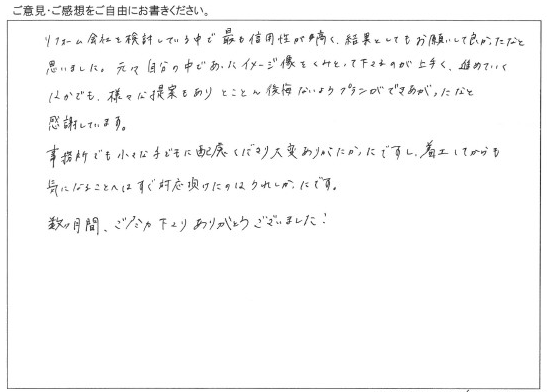 ご意見・ご感想をご自由にお書きください。
リフォーム会社を検討している中で最も信用性が高く、結果としてもお願いして良かったなと
思いました。元々自分の中であったイメージ像をくみとって下さるのが上手く、進めていく
なかでも、様々な提案もありとことん後悔ないようプランができあがったなと
感謝しています。
事務所でも小さな子どもに配慮くださり大変ありがたかったですし、着工してからも
気になることへはすぐ対応頂けたのはうれしかったです。
数ヶ月間、ご尽力下さりありがとうございました!